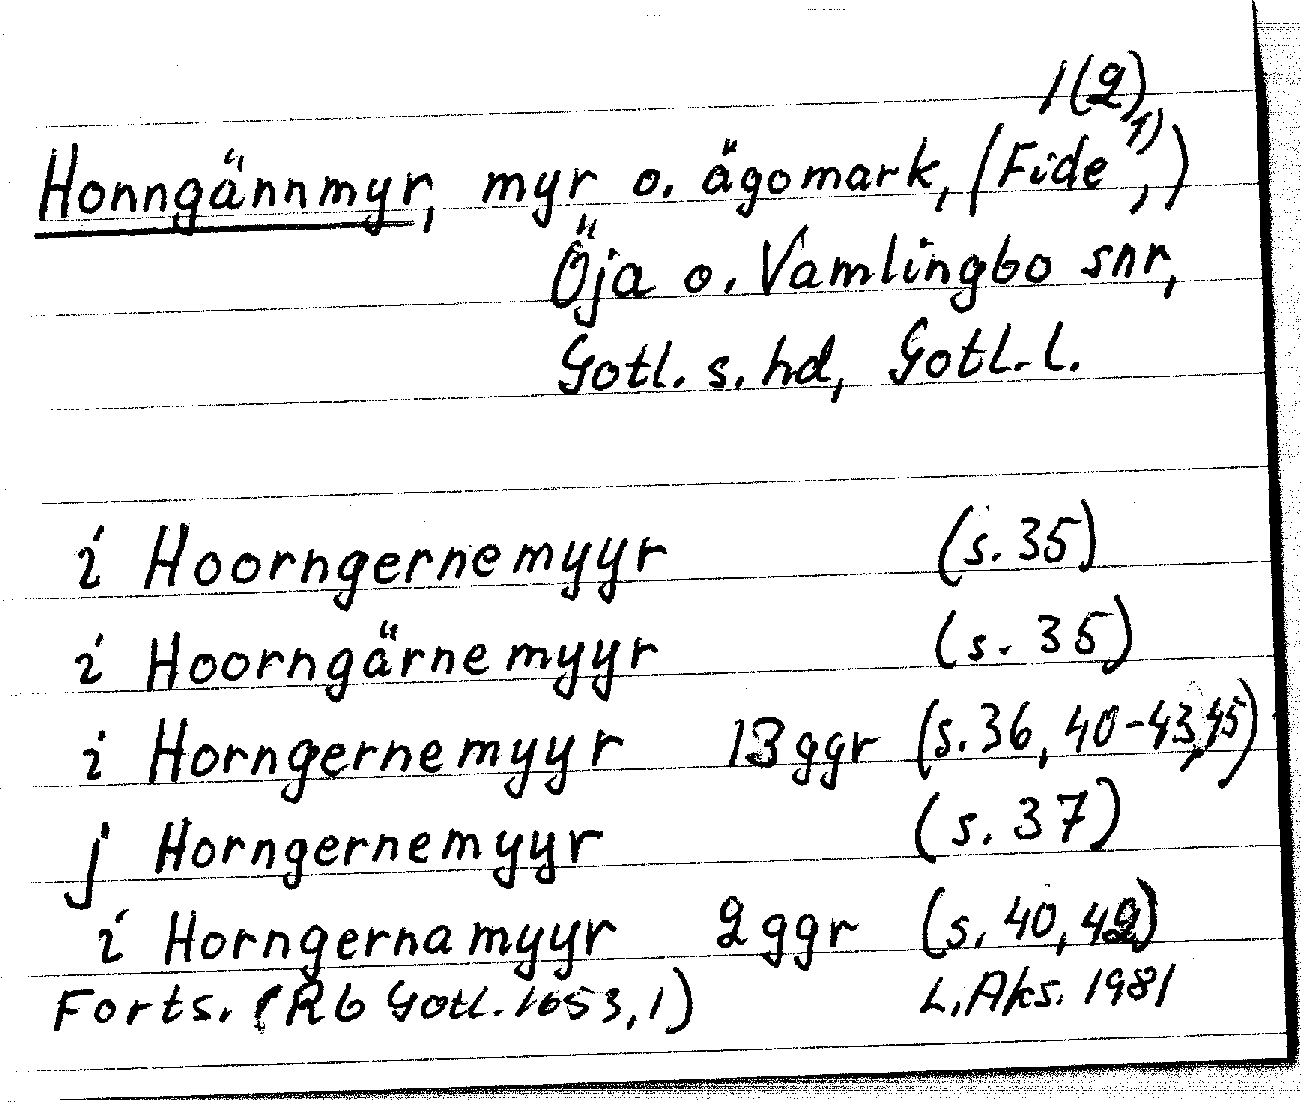 1(2)
Honngännmyr, myr o. ägomark, (Fide 1),)
Öja o. Vamlingbo snr,
Gotl. s. hd, Gotl. l.
i Hoorngernemyyr (s. 35)
i Hoorngärnemyyr (s. 35)
i Horngernemyyr 13 ggr (s. 36, 40-43, 45)
j Horngernemyyr (s. 37)
i Horngernamyyr 2 ggr (s. 40, 42)
Forts. (Rb Gotl. 1653, 1) L. Aks. 1981